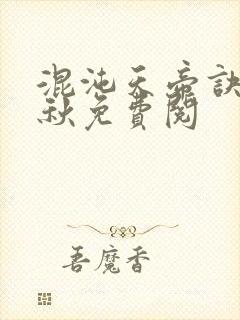 混沌天帝訣
秋免費閱
吾魔香